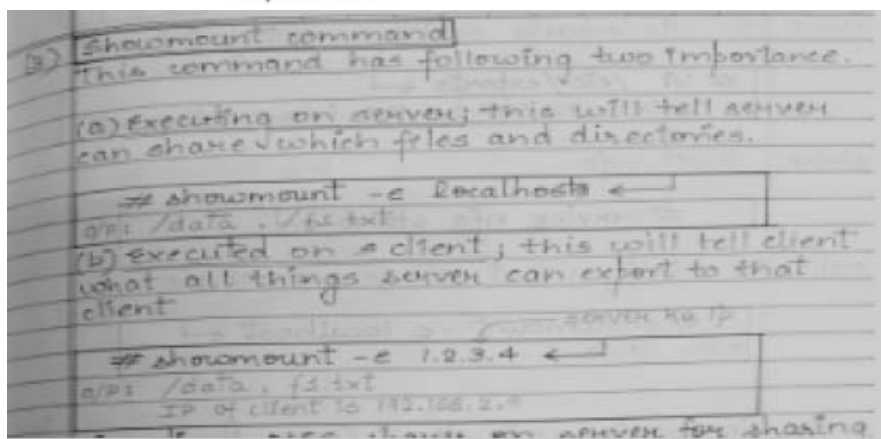 3) showmount command
This command has following two Importance.
(a) Executing on server; this will tell server
can share which files and directories.
# showmount -e localhosts
o/p: /data, /f1.txt
(b) Executed on a client; this will tell client
what all things server can export to that
client
server ka IP
# showmount -e 1.2.3.4
o/p: /data, f1.txt
IP of client is 192.168.2.
on server for sharing